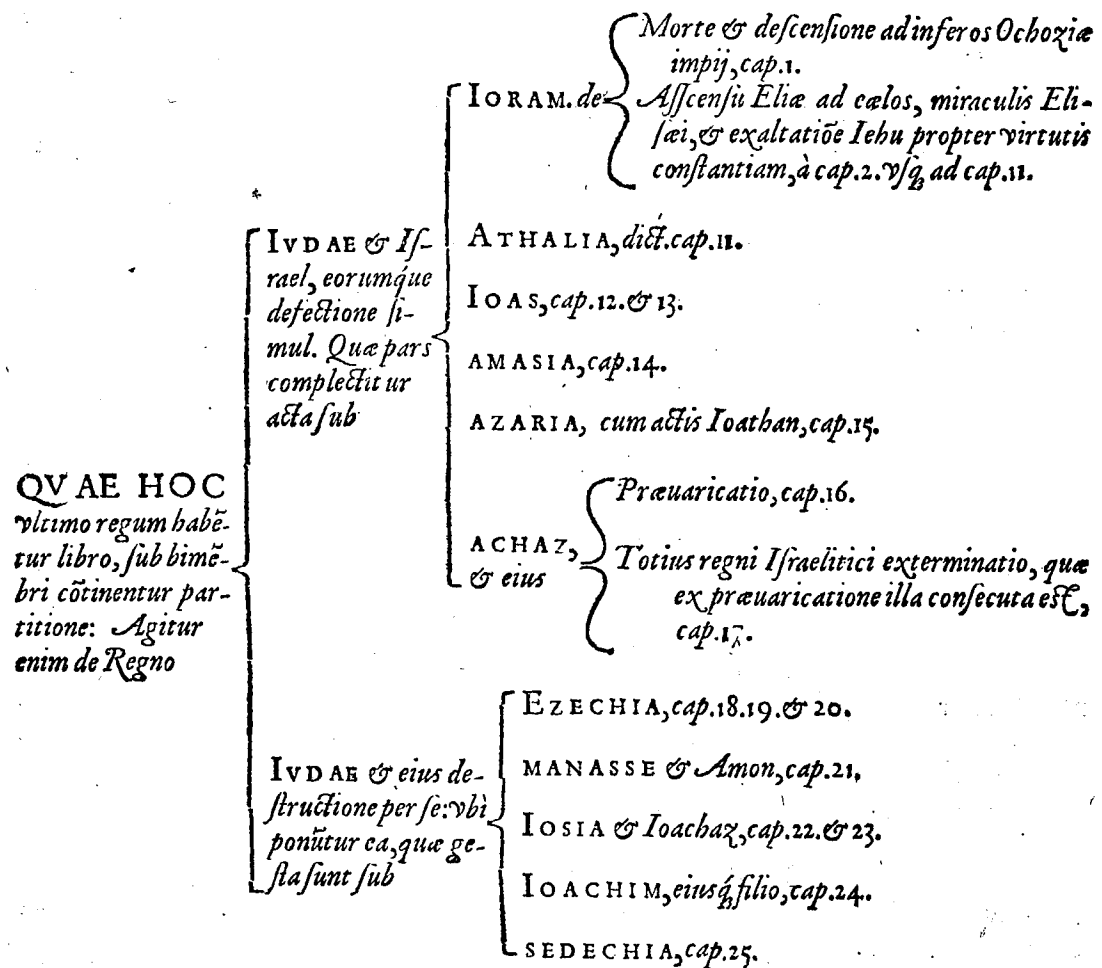 QVAE HOC
vltimo regum habẽ-
tur libro, ſub bimẽ-
bri cõtinentur par-
titione: Agitur
enim de Regno
IVDAE & Iſ-
rael, eorumq́ue
defectione ſi-
mul. Quæ pars
complectitur
acta ſub
IORAM. de
Morte & deſcenſione ad inferos Ochoziæ
impij, cap.1.
Aſſcenſu Eliæ ad cælos, miraculis Eli-
ſæi, & exaltatiõe Iehu propter virtutis
conſtantiam, à cap.2. vſq; ad cap.11.
ATHALIA, dict. cap.11.
IOAS, cap.12. & 13.
AMASIA, cap.14.
AZARIA, cum actis Ioathan, cap.15.
ACHAZ,
& eius
Præuaricatio, cap.16.
Totius regni Iſraelitici exterminatio, quæ
ex præuaricatione illa conſecuta eſt,
cap.17.
IVDAE & eius de-
ſtructione per ſe: vbì
ponũtur ea, quæ ge-
ſta ſunt ſub
EZECHIA, cap.18.19. & 20.
MANASSE & Amon, cap.21.
IOSIA & Ioachaz, cap.22. & 23.
IOACHIM, eiusq́; filio, cap.24.
SEDECHIA, cap.25.